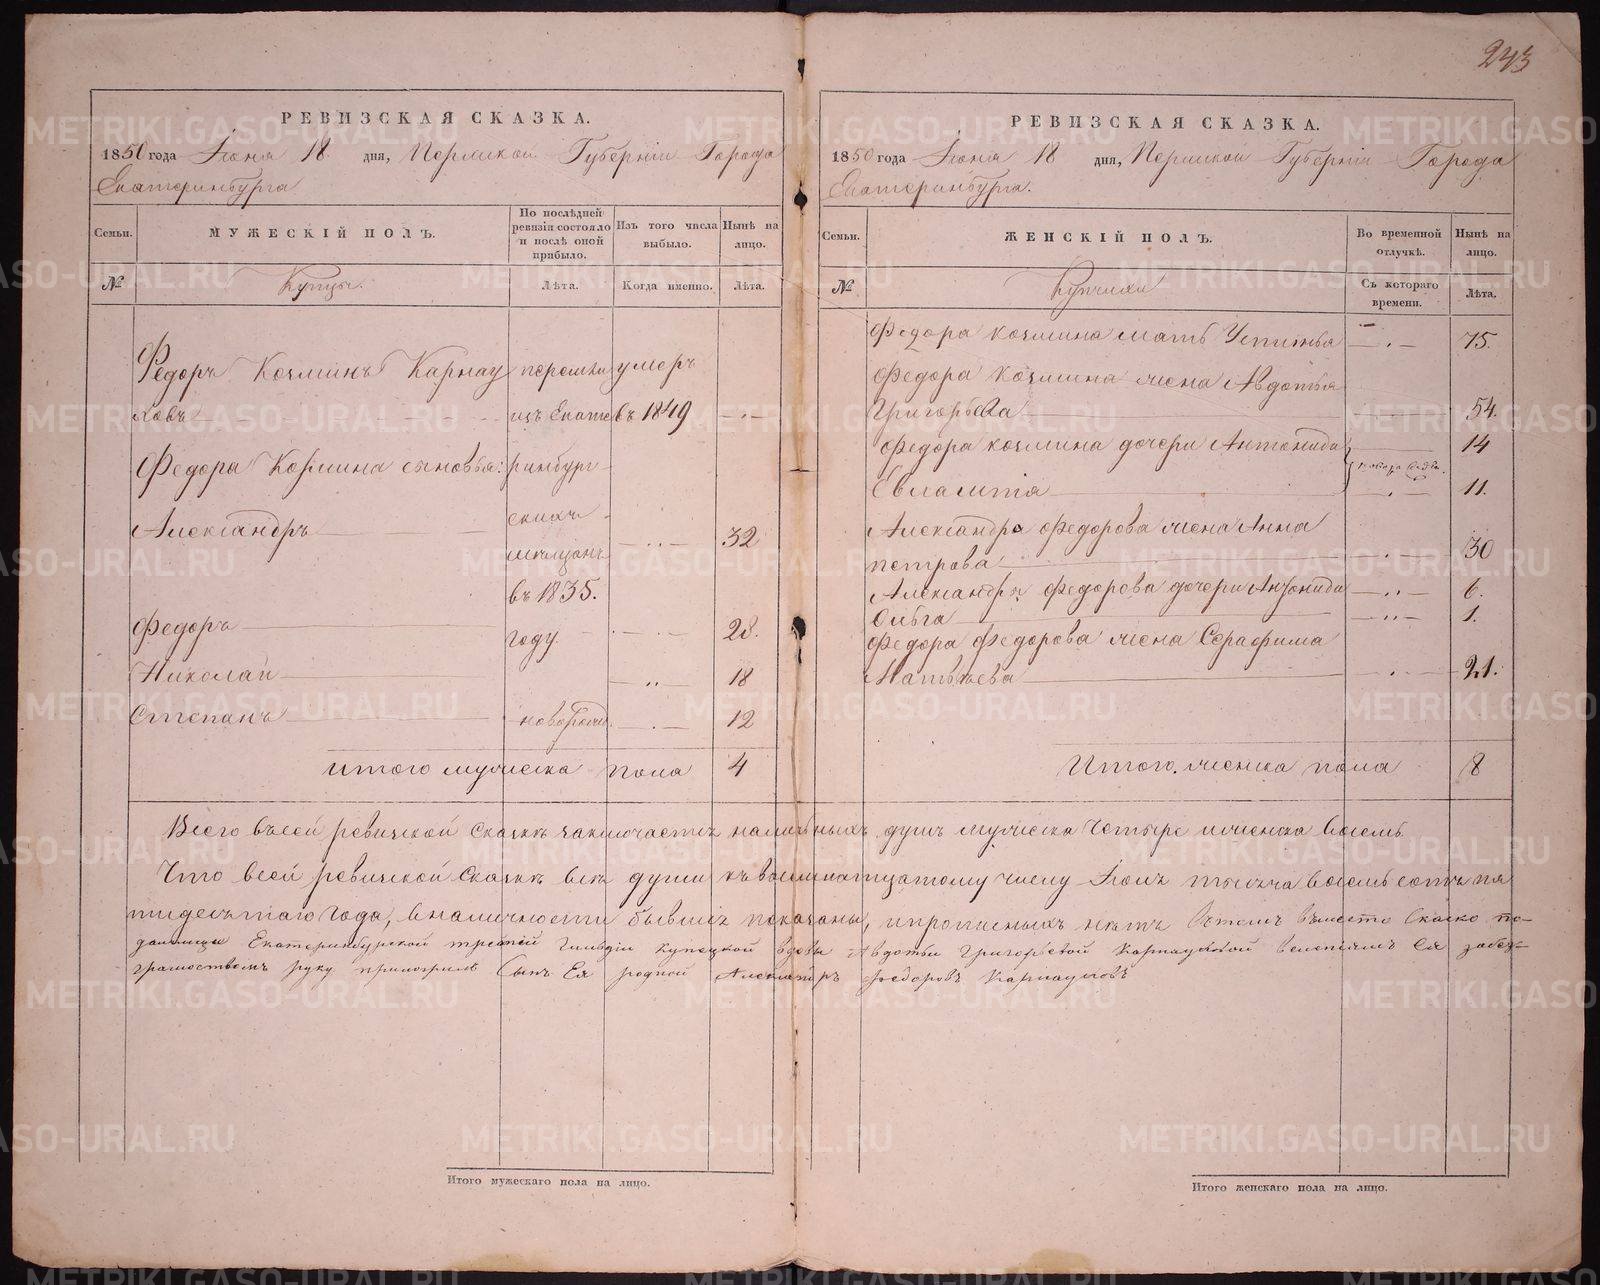 243
РЕВИЗСКАЯ СКАЗКА.
1850 года Іюня 18 дня, Пермской Губерніи Города
Екатеринбурга
Семьи.
МУЖЕСКІЙ ПОЛЪ.
По послѣдней ревизіи состояло и послѣ оной прибыло.
Изъ того числа выбыло.
Нынѣ на лицо.
№
Купцы.
Лѣта.
Когда именно.
Лѣта.
Федоръ Козминъ Карнау
ховъ
перешли
изъ Екате
ринбург
скихъ
мещанъ
въ 1835.
году
умеръ
въ 1849
Федора Козмина сыновья:
Александръ 32
Федоръ 28.
Николай 18
Степанъ 12
Итого мужеска пола 4
РЕВИЗСКАЯ СКАЗКА.
1850 года Іюня 18 дня, Пермской Губерніи Города
Екатеринбурга.
Семьи.
ЖЕНСКІЙ ПОЛЪ.
Во временной отлучкѣ.
Нынѣ на лицо.
№
Купчихи
Съ котораго времени.
Лѣта.
Федора козмина мать Устинья 75.
Федора козмина жена Авдотья
Григорьева 54.
Федора козмина дочери Антонида 14
Евлампія 11.
Александра Федорова жена Анна
петрова 30
Александра Федорова дочери Антонида 6.
Ольга 1.
Федора Федорова жена Серафима
Матвѣева 21.
Итого женска пола 8
Всего въсей ревизской сказкѣ заключается наличныхъ душъ мужеска четыре иженска восемь
Что всей ревизской Сказкѣ всѣ души къ восемнатцатому числу Іюня тысяча восемьсотъ пя
тидесятаго Года, вналичности бывшіе показаны, ипрописныхъ нѣтъ Вътомъ вместо Сказко по-
дательницы Екатеринбургской третей Гильдіи купецкой вдовы Авдотьи Григорьевой Карнауховой Ея
грамотствомъ руку приложилъ Сынъ Ея родной Александръ Федоровъ Карнауховъ
Итого мужескаго пола на лицо.
Итого женскаго пола на лицо.
METRIKI.GASO-URAL.RU